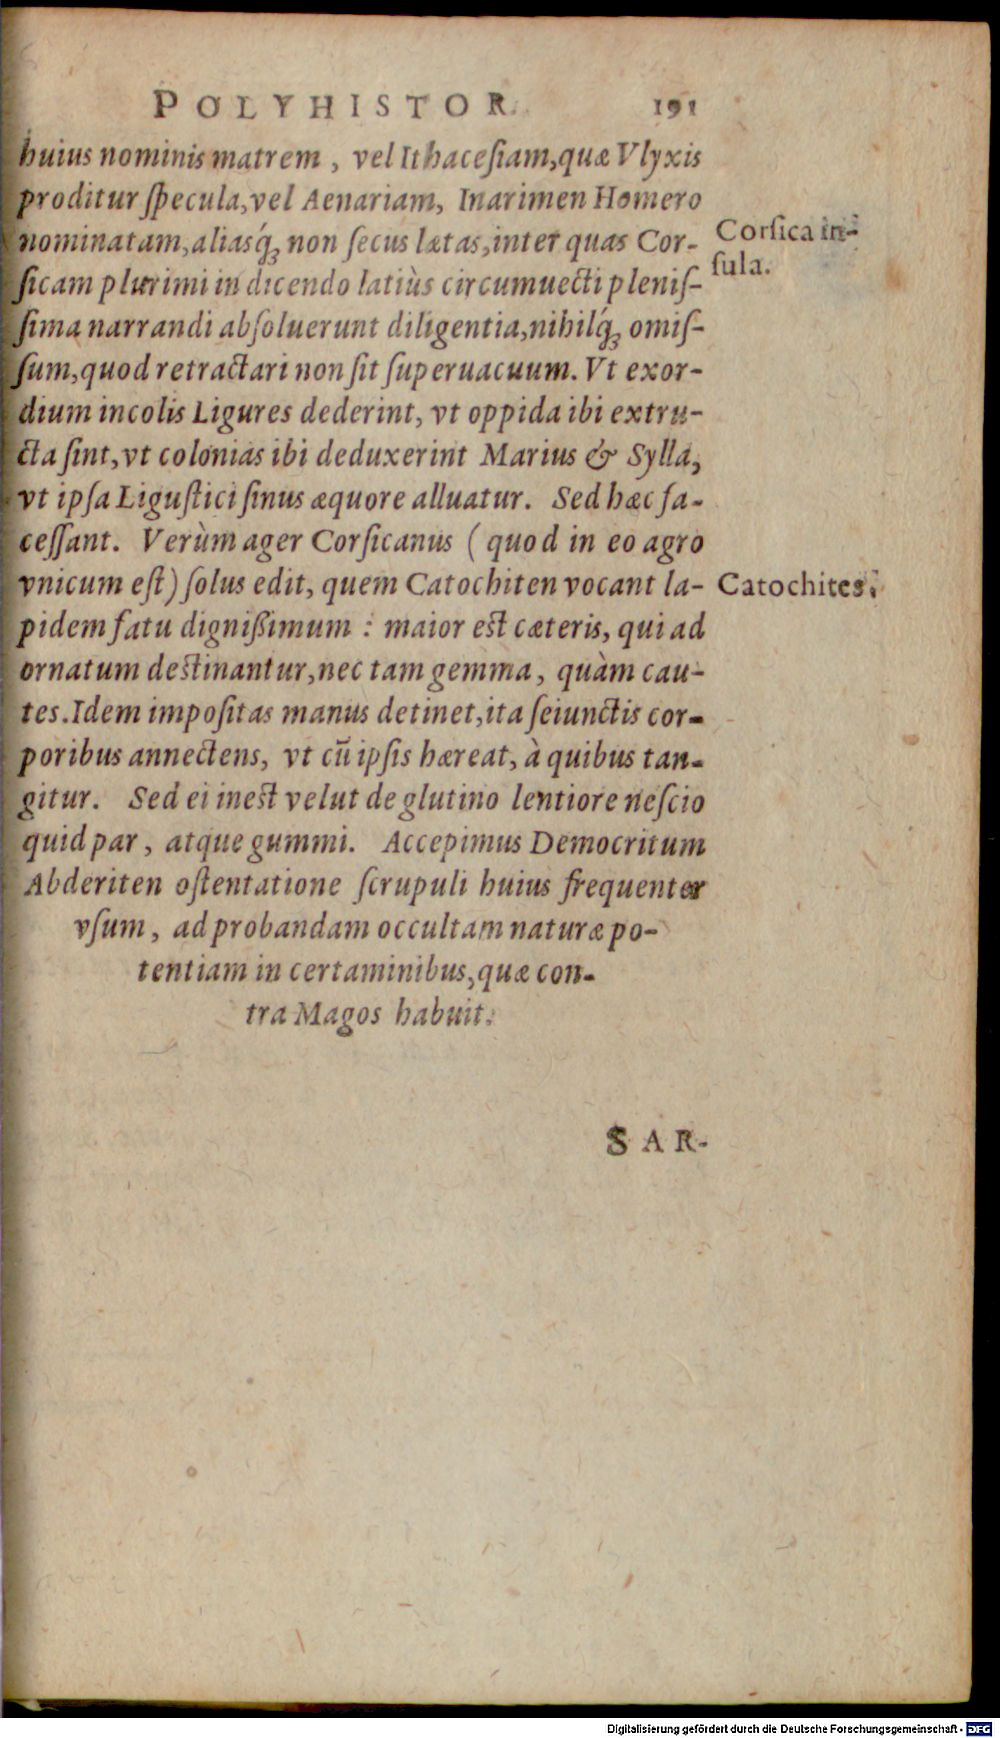 POLYHISTOR. 191
huius nominis matrem, vel Ithacesiam, quæ Vlyxis
proditur specula, vel Aenariam, Inarimen Homero
nominatam, aliasq́ꝫ non secus lætas, inter quas Cor-
Corsica in-
sula.
sicam plurimi in dicendo latiùs circumuecti plenis-
sima narrandi absoluerunt diligentia, nihilq́ꝫ omis-
sum, quod retractari non sit superuacuum. Vt exor-
dium incolis Ligures dederint, vt oppida ibi extru-
cta sint, vt colonias ibi deduxerint Marius & Sylla,
vt ipsa Ligustici sinus æquore alluatur. Sed hæc fa-
cessant. Verùm ager Corsicanus (quod in eo agro
vnicum est) solus edit, quem Catochiten vocant la-
Catochites.
pidem fatu dignißimum: maior est cæteris, qui ad
ornatum destinantur, nec tam gemma, quàm cau-
tes. Idem impositas manus detinet, ita seiunctis cor-
poribus annectens, vt cū ipsis hæreat, à quibus tan-
gitur. Sed ei inest velut de glutino lentiore nescio
quid par, atque gummi. Accepimus Democritum
Abderiten ostentatione scrupuli huius frequenter
vsum, ad probandam occultam naturæ po-
tentiam in certaminibus, quæ con-
tra Magos habuit.
SAR-
Digitalisierung gefördert durch die Deutsche Forschungsgemeinschaft - DFG